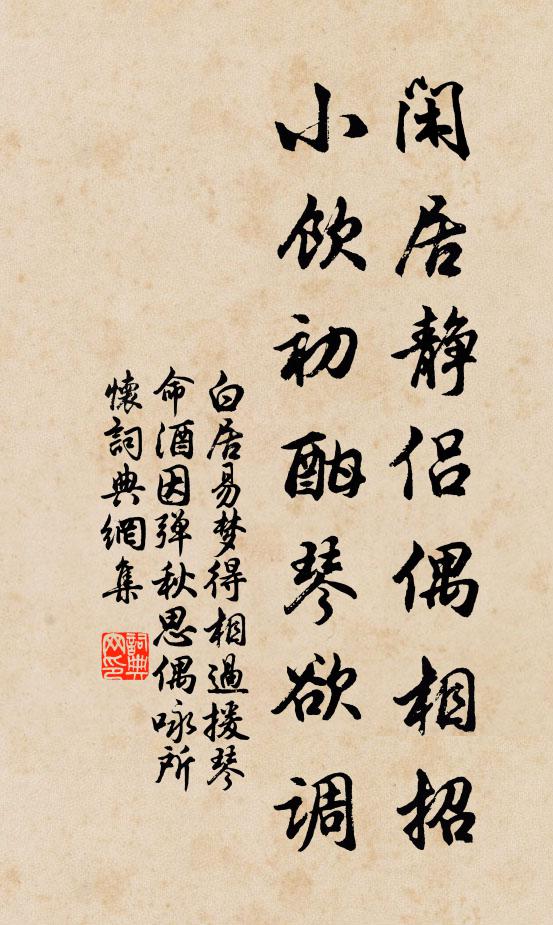 闲居静侣偶相招
小飲初酣琴欲调
白居易梦得相過援琴
命酒因弹秋思偶咏所
懷詞典網集
詞典
网